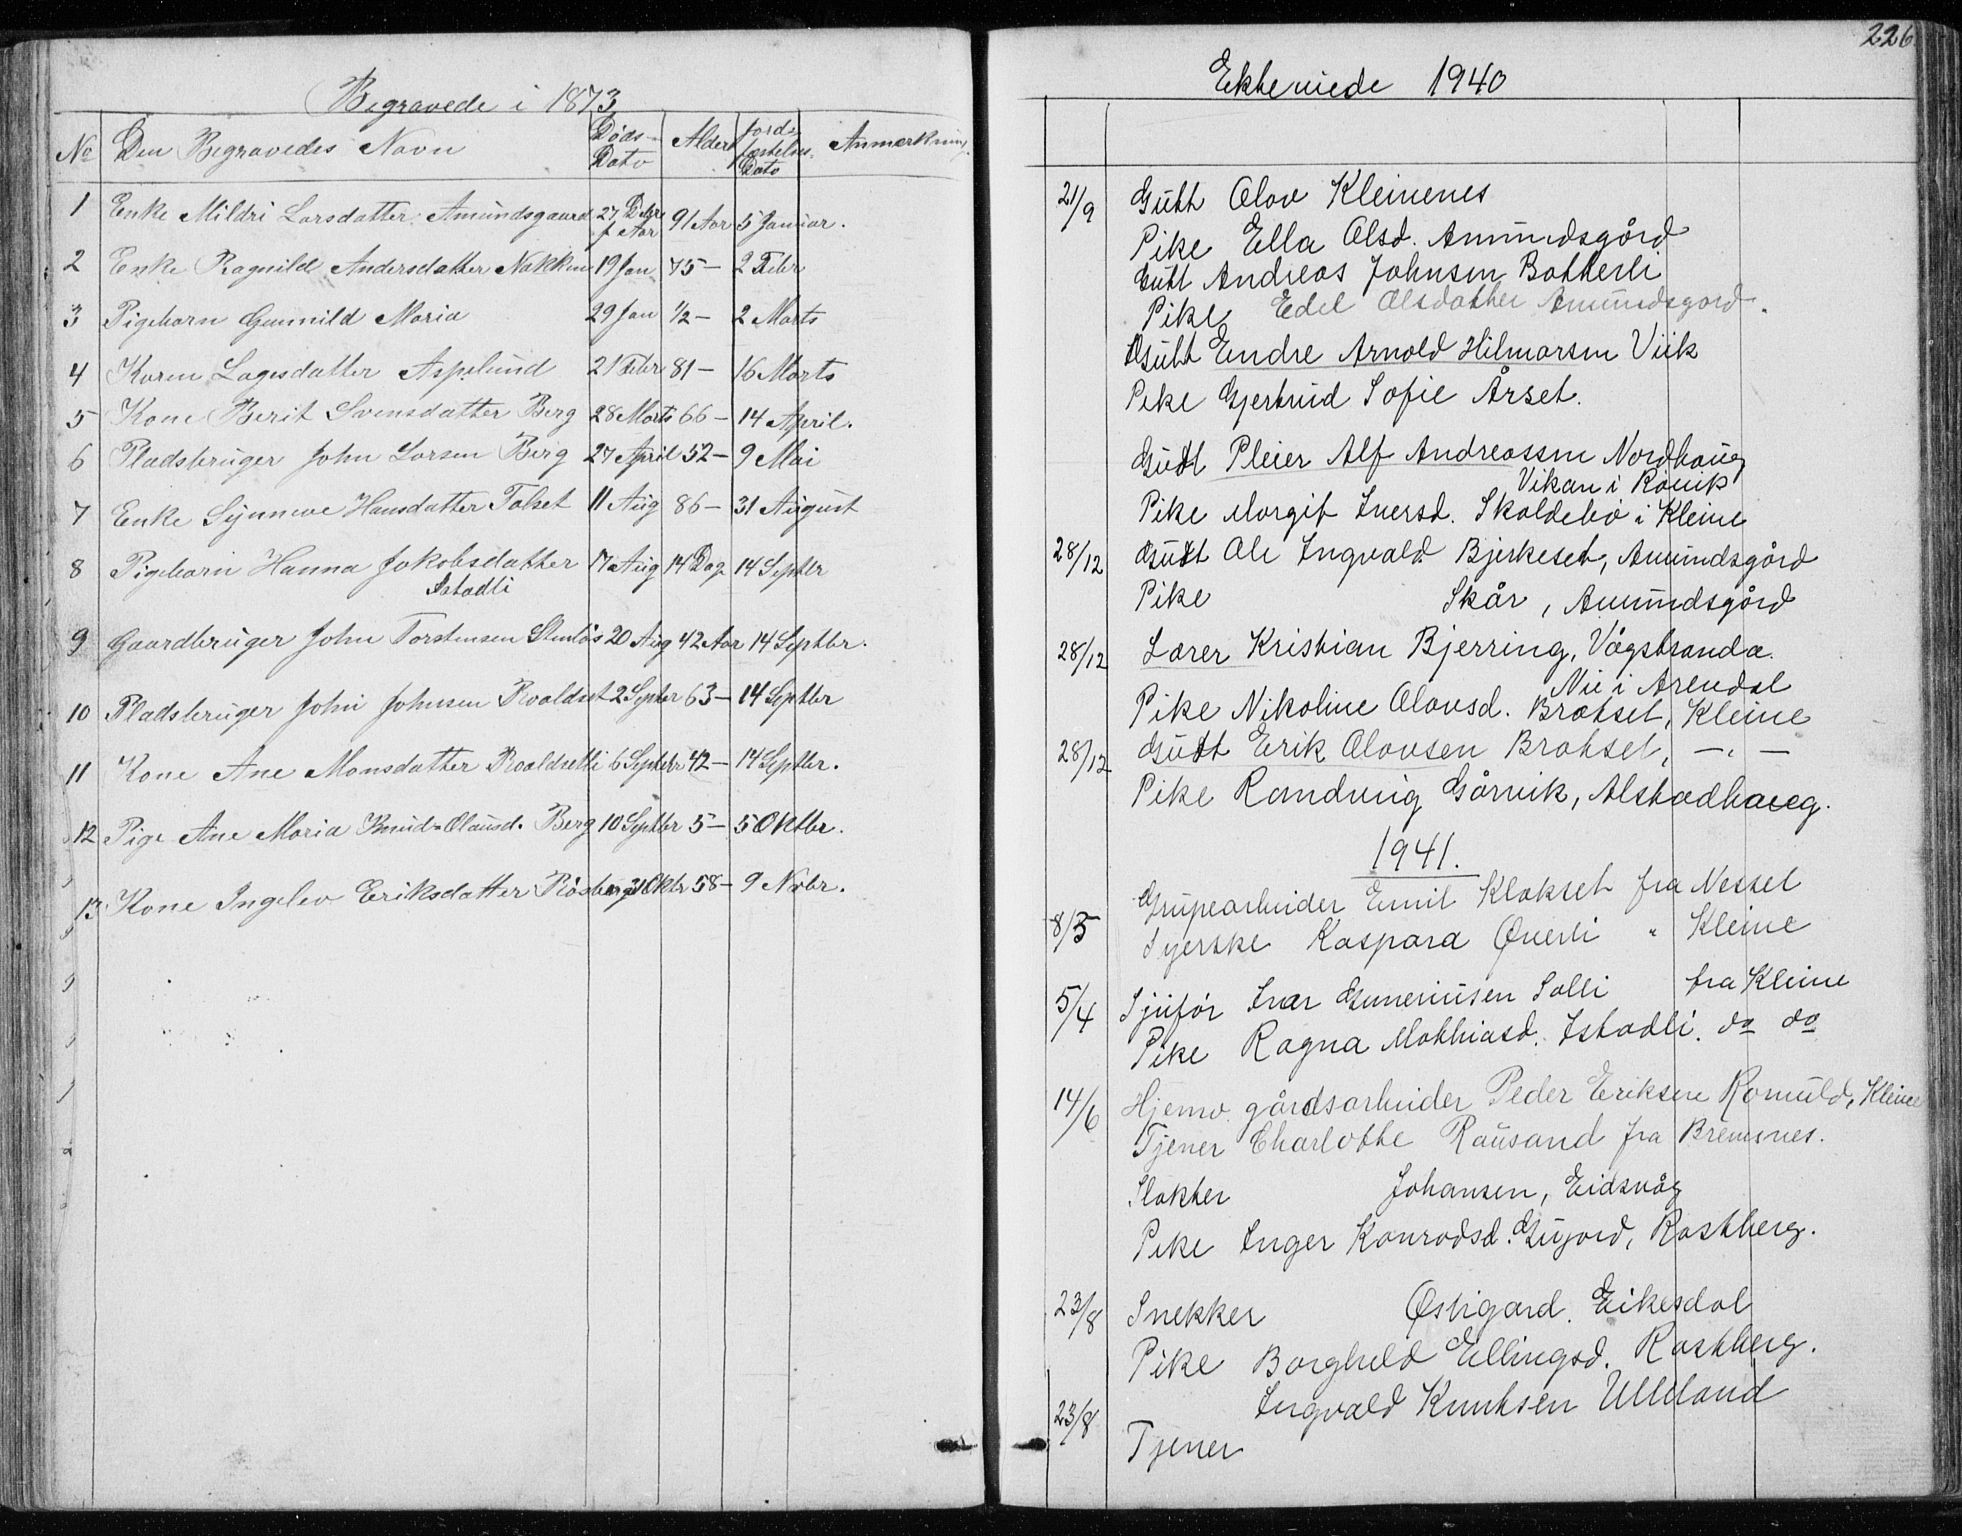 Begravede i 1873
No Den Begravedes Navn Døds-Dato Alder Jordfæstelses Dato Anmærkning
1 Enke Mildri Larsdatter Amundsgaard 27 Debr f Aar 91 Aar 5 Januar.
2 Enke Ragnild Andersdatter Nakken 19 Jan 75 — 2 Febr
3 Pigebarn Gunnild Maria 29 Jan ½ — 2 Marts
4 Karen Lagesdatter Aspelund 21 Febr 81 — 16 Marts
5 Kone Berit Svensdatter Berg 28 Marts 66 — 14 April.
6 Pladsbruger John Larsen Berg 27 April 52 — 9 Mai
7 Enke Synneve Hansdatter Tolset 11 Aug 86 — 31 August
8 Pigebarn Hanna Jakobsdatter 17 Aug 14 Dag 14 Septbr
Istadli
9 Gaardbruger John Torstensen Stenløs 20 Aug 42 Aar 14 Septbr.
10 Pladsbruger John Johnsen Roaldset 2 Septbr 63 — 14 Septbr
11 Kone Ane Monsdatter Roaldsetli 6 Septbr 42 — 14 Septbr.
12 Pige Ane Maria Knud-Olausd. Berg 10 Septbr 5 — 5 Oktbr.
13 Kone Ingelev Eriksdatter Røsberg 31 Oktbr 58 — 9 Novbr.
226
Ekteviede 1940
21/9 Gutt Olov Kleivenes
Pike Ella Olsd. Amundsgård
Gutt Andreas Johnsen Botterli
Pike Edel Olsdatter Amundsgard.
Gutt Endre Arnold Hilmarsen Viik
Pike Gjertrud Sofie Årset.
Gutt Pleier Alf Andreassen Nordhaug
Vikan i Røvik
Pike Margit Iversd. Skaldebø i Kleive
28/12 Gutt Ole Ingvald Bjerkeset, Amundsgård
Pike Skår, Amundsgård
28/12 Lærer Kristian Bjerring, Vågstranda.
Nu i Arendal
Pike Nikoline Olovsd. Bratset, Kleive
28/12 Gutt Erik Olovsen Bratset, —"—
Pike Randveig Gårvik, Alstadhaug.
1941.
Grupearbeider Emil Klokset fra Nesset
8/3 Syerske Kaspara Øverli " Kleive
5/4 Sjufør Ivar Guneriusen Solli fra Kleive
Pike Ragna Mathiasd. Istadli. do do
14/6 Hjemv. gårdsarbeider Peder Eriksen Romuld, Kleive
Tjener Charlotte Rausand fra Bremsnes.
Slakter Johansen, Eidsvåg
Pike Inger Konradsd. Gujord, Rostberg.
23/8 Snekker Østigard. Eikesdal
Pike Borghild Ellingsd. Rostberg.
23/8 Ingvald Knutsen Ulleland
Tjener